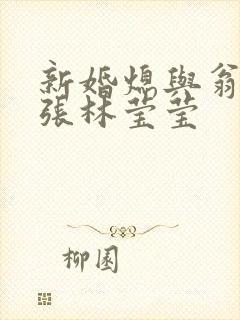 新婚熄與翁
張林莹莹
柳園